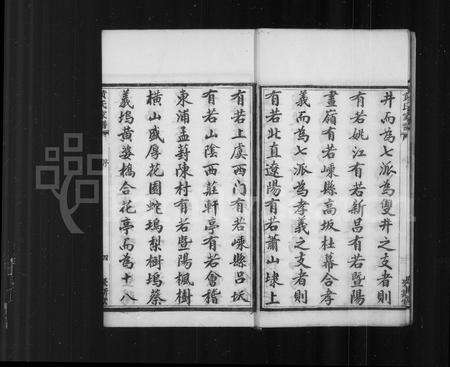 井而為七派為雙井之支者則
有若姚江有若新昌有若暨陽
畫嶺有若嵊縣高坂杜幕合孝
義而為七派為孝義之支者則
有若北直遼陽有若蕭山埭上
有若上虞西門有若嵊縣呂坂
有若山陰西莊軒亭有若會稽
東浦孟葑陳村有若暨陽楓樹
橫山盛厚花園蛇塢梨樹塢蔡
義塢黃婆橋合花亭而為十八
序
四